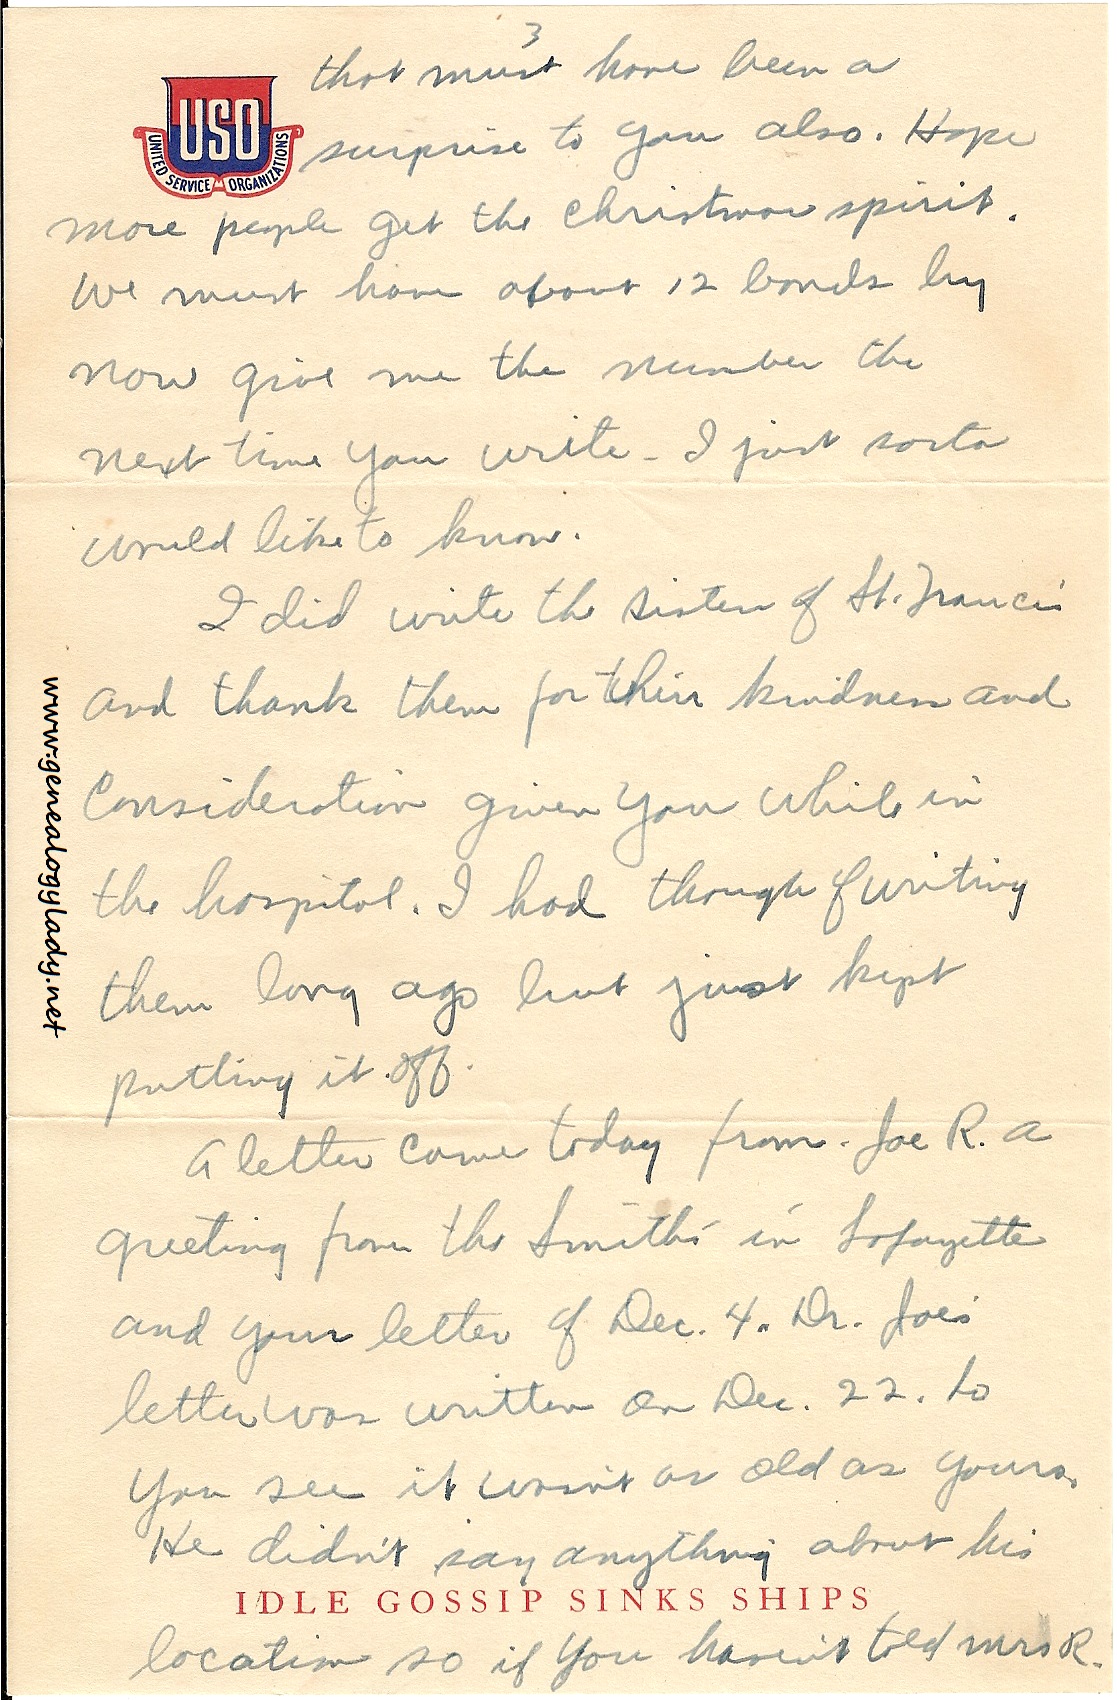 3
that must have been a
USO
UNITED SERVICE ORGANIZATIONS
surprise to you also. Hope
more people get the Christmas spirit.
We must have about 12 bonds by
now give me the number the
next time you write - I just sorta
would like to know.
I did write the sisters of St. Francis
and thank them for their kindness and
consideration given you while in
the hospital. I had though of writing
them long ago but just kept
putting it off.
A letter came today from Joe R. a
greeting from the Smiths in Lafayette
and your letter of Dec. 4. Dr. Joes
letter was written on Dec. 22. So
you see it wasn't as old as yours.
He didn't say anything about his
IDLE GOSSIP SINKS SHIPS
location so if you haven't told Mrs R.
www.genealogylady.net